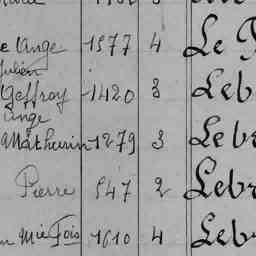 Ange 1577 4 Le
Julien
Geffroy 1420 3 Leb
Ange
Mathurin 1279 3 Lebr
Pierre 547 2 Lebr
Mie Fois 1610 4 Lebr